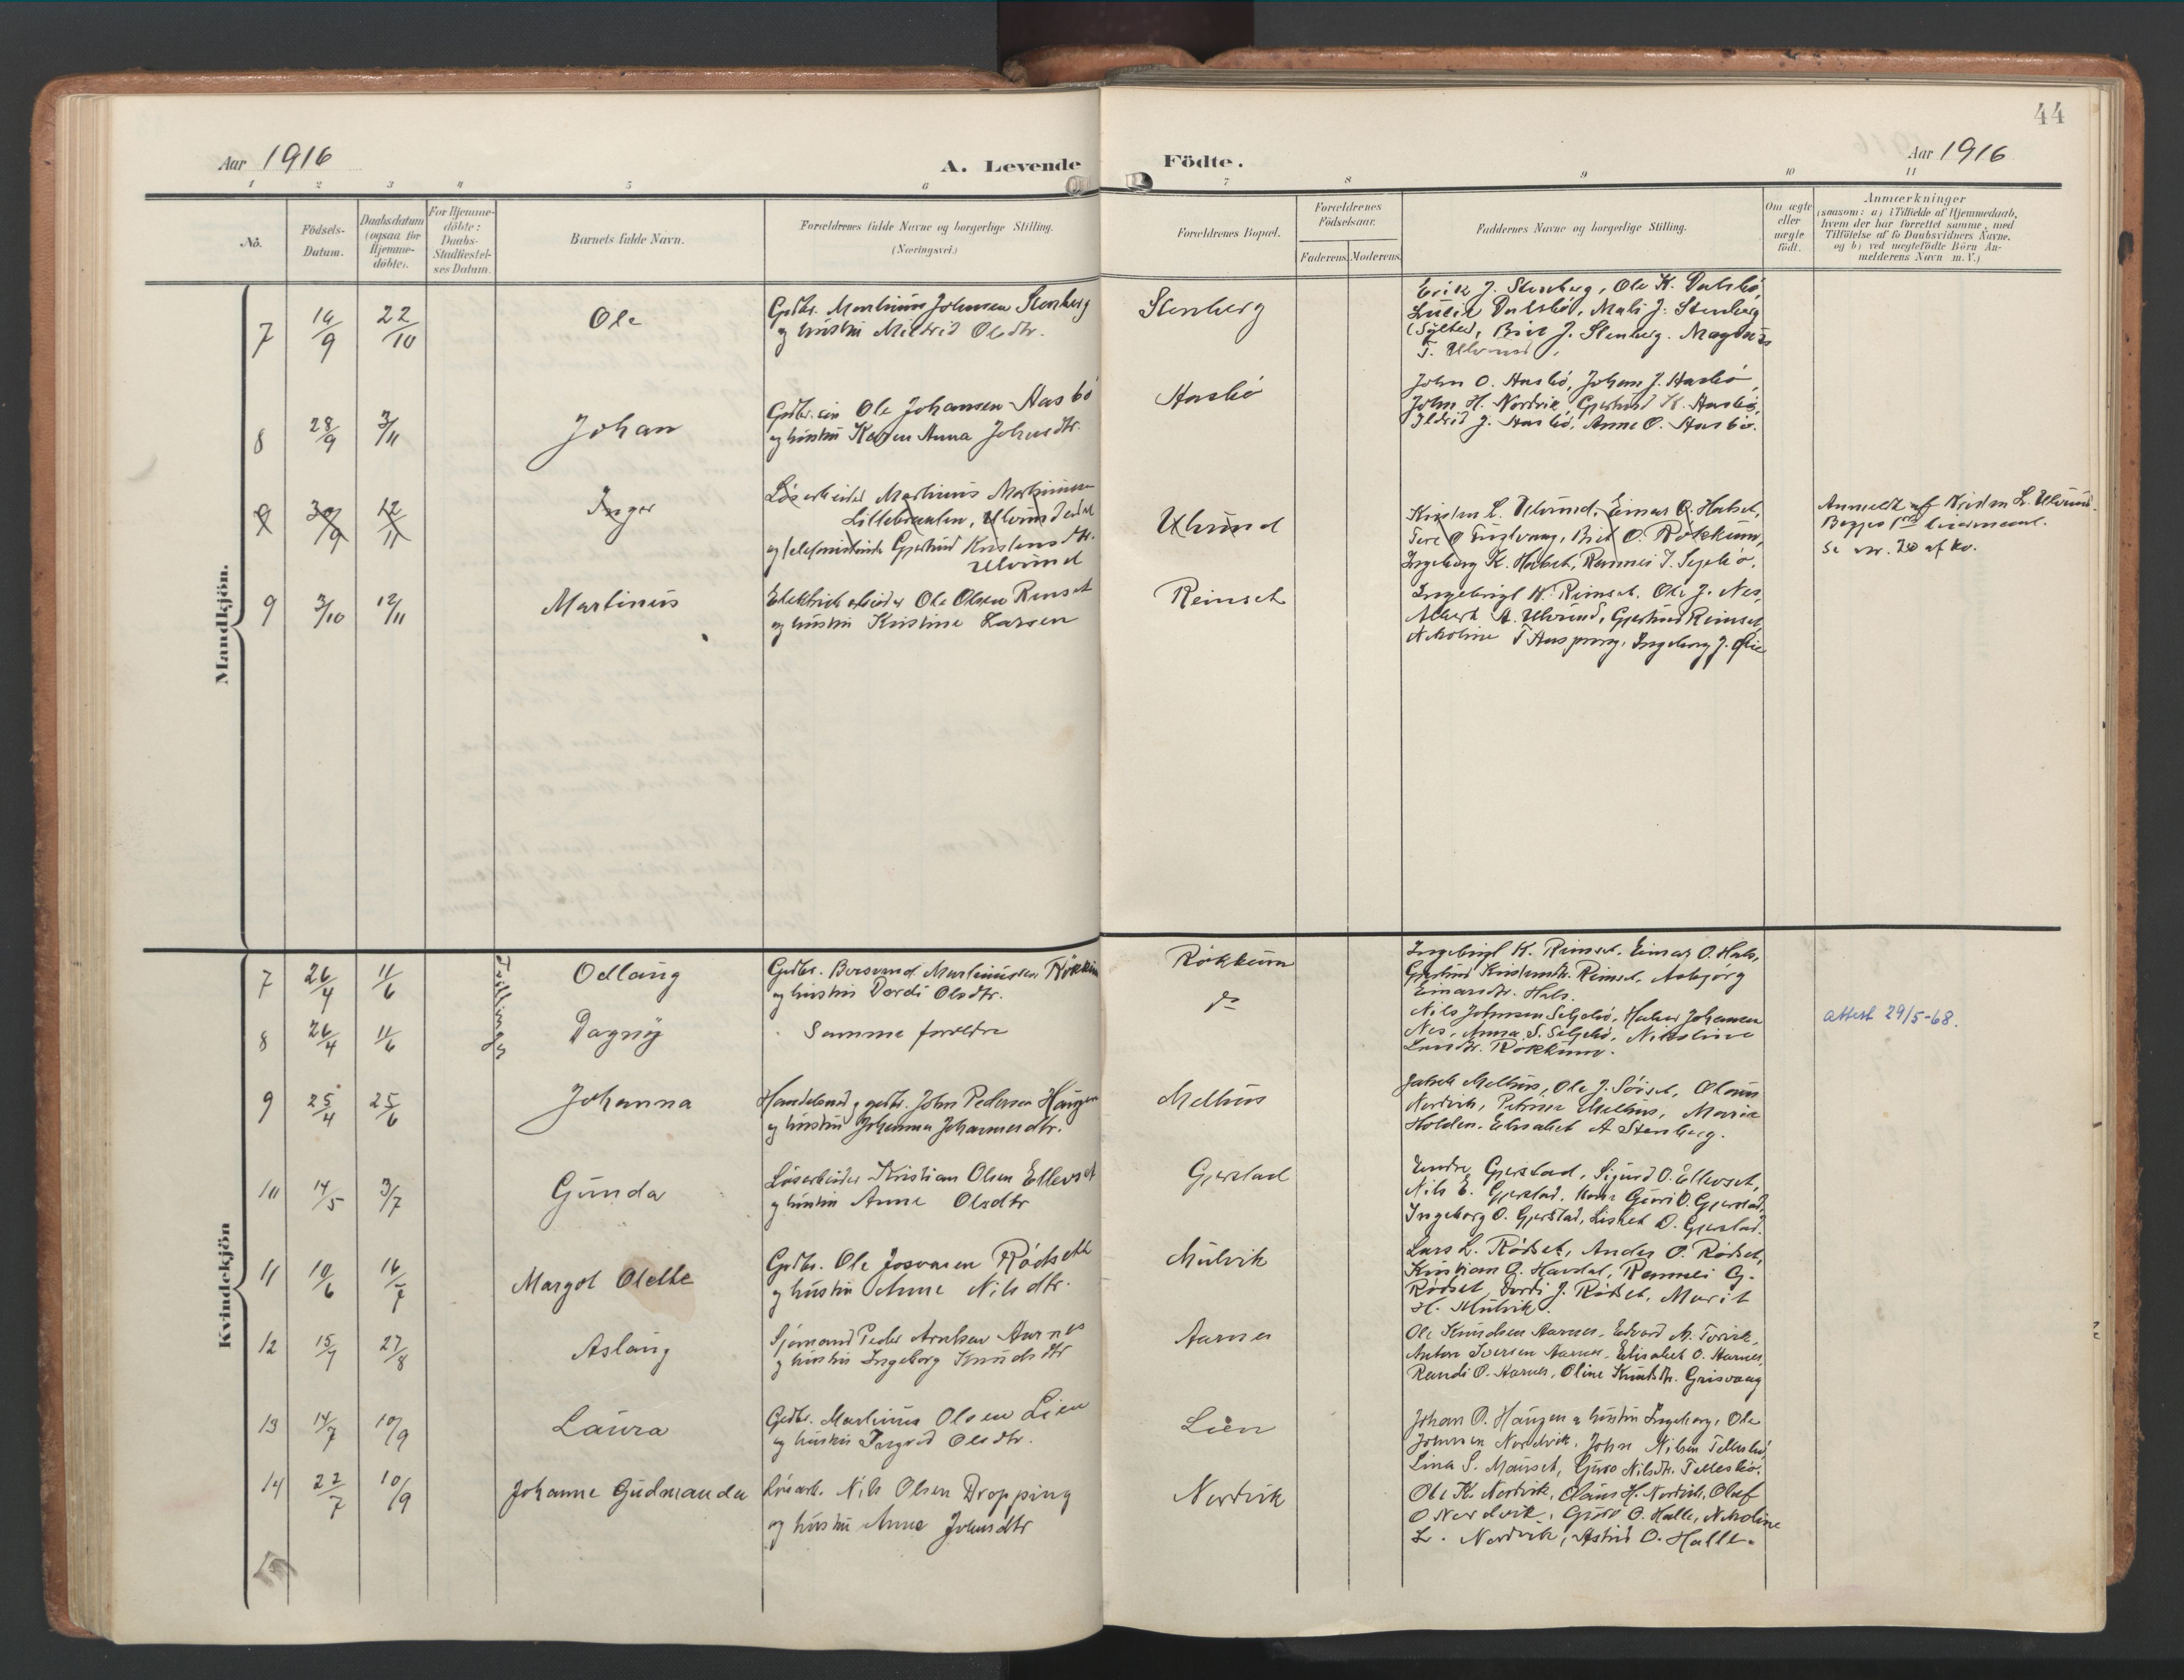 44
Aar 1916
A. Levende Födte.
Aar 1916
1 2 3 4 5 6 7 8 9 10 11
Nö.
Födsels-
Datum.
Daabsdatum
(ogsaa for
Hjemme-
döbte).
For Hjemme-
döbte:
Daabs-
Stadfæstel-
ses Datum.
Barnets fulde Navn.
Forældrenes fulde Navne og borgerlige Stilling.
(Næringsvei.)
Forældrenes Bopæl.
Forældrenes
Födselsaar.
Faderens. Moderens.
Faddernes Navne og borgerlige Stilling.
Om ægte
eller
uægte
födt.
Anmærkninger
(saasom: a) i Tilfælde af Hjemmedaab,
hvem der har forrettet samme, med
Tilföielse af to Daabsvidners Navne.
og b) ved uægtefödte Börn An-
melderens Navn m. V.)
Mandkjön.
7 14/9 22/10 Ole
Gvdbr. Martinus Johnsen Stenberg
og hustru Mildrid Olsdtr.
Stenberg
Erik J. Stenberg, Ole K. Dalsbö,
Lucie Dalsbö, Mali J. Stenberg
Brit J. Stenberg. Magnus
T. Ulvund
8 28/9 3/11 Johan
Ole Johansen Aasbö
og hustru Karen Anna Johnsdtr.
Aasbö
John O. Aasbö, Johan J. Aasbö,
John H. Nordvik, Gjertrud K. Aasbö,
Ildrid J. Aasbö, Anne O. Aasbö.
9 30/9 12/11 Inger
Lösarbeider Martinus Martinsen
Ulvundeidet
og telefonistinde Gjertrud Kristensdtr.
Ulvund
Ulvund
Kristen L. Ulvund, Einar O. Halset,
Brit O. Rökkum,
Ingeborg K. Halset,
Anmeldt af Kristen L. Ulvund.
Begges 1ste leiermaal.
Se nr. 20 af kv.
9 3/10 12/11 Martinus
Elektrisk arbeider Ole Olsen Renset
og hustru Kristine Larsen
Reinset
Ingebrigt K. Reinset, Ole J. Nes,
Albert A. Ulvund, Gjertrud Reinset
Nikoline T. Ingeborg J.
Kvindekjön
Tvillinger
7 26/4 11/6 Odlaug
Gvdbr. Bersvend Martinussen Rökkum
og hustru Dordi Olsdtr.
Rökkum
Ingebrigt K. Reinset, Einar O. Hals,
Gjertrud Kristensdtr. Reinset, Asbjörg
Einarsdtr. Hals.
8 26/4 11/6 Dagny
Samme forældre
do
Nils Johnsen Seljebö, Johansen
Nes, Anna S. Seljebö, Nikoline
Larsdtr. Rökkum.
attest 29/5-68.
9 25/4 25/6 Johanna
Handelsmd. og gvdbr. John Pedersen Haugen
og hustru Johanna Johannesdtr.
Melhus
Jakob Melhus, Ole J. Söiset, Olaus
Nordvik, Petrine Melhus, Marie
Holden. Elisabet A Stenberg.
10 14/5 3/7 Gunda
Lösarbeider Kristian Olsen Ellevset
og hustru Anne Olsdtr
Gjerstad
Endre Gjerstad, Sigurd O. Ellevset,
Nils E. Gjerstad, Kone Guri O. Gjerstad,
Ingeborg O. Gjerstad, Lisbet O. Gjerstad.
11 10/6 16/7 Margot Olette
Gvdbr. Ole Rödseth
og hustru Anne Nilsdtr.
Mulvik
Lars L. Rödset, Anders O. Rödset,
Kristian G. Havdal, Rannei G.
Rödset, Dordi J. Rödset, Marit
H. Mulvik.
12 15/7 27/8 Aslaug
Sjömand Peder Arntsen Aarnes
og hustru Ingeborg Knudsdtr
Aarnes
Ole Knudsen Aarnes, Edvard M. Torvik,
Anton Iversen Aarnes, Elisabet O. Aarnes,
Randi O. Aarnes, Oline Knutsdtr. Grisvaag
13 14/7 10/9 Laura
Gvdbr. Martinus Olsen Lien
og hustru Ingrid Olsdtr.
Lien
Johan O. Haugen & hustru Ingeborg, Ole
Johnsen Nordvik, John Nilsen Tellesbö,
Lina S. Mauset, Guro Nilsdtr. Tellesbö.
14 22/7 10/9 Johanne Gudmanda
Lösarb. Nils Olsen Dropping
og hustru Anne Johnsdtr
Nordvik
Ole K. Nordvik, Olaus H. Nordvik, Oluf
O Nordvik, Guro O. Halle, Nikoline
L. Nordvik, Astrid O. Halle.
15